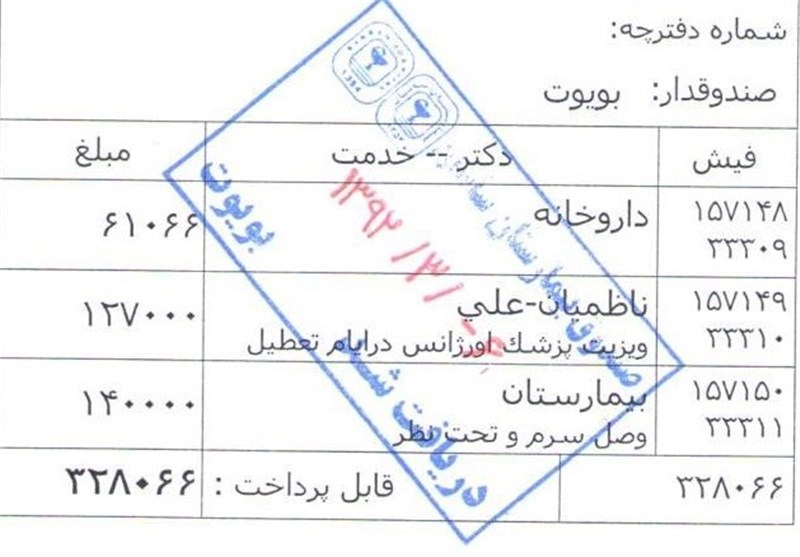 شماره دفترچه:
صندوقدار: بویوت
فیش دکتر -- خدمت مبلغ
۱۵۷۱۴۸ داروخانه ۶۱۰۶۶
۳۳۳۰۹
۱۵۷۱۴۹ ناظمیان-علي ۱۲۷۰۰۰
۳۳۳۱۰ ویزیت پزشك اورژانس درایام تعطیل
۱۵۷۱۵۰ بیمارستان ۱۴۰۰۰۰
۳۳۳۱۱ وصل سرم و تحت نظر
۳۲۸۰۶۶ قابل پرداخت : ۳۲۸۰۶۶
صندوق بیمارستان
دریافت شد
بویوت